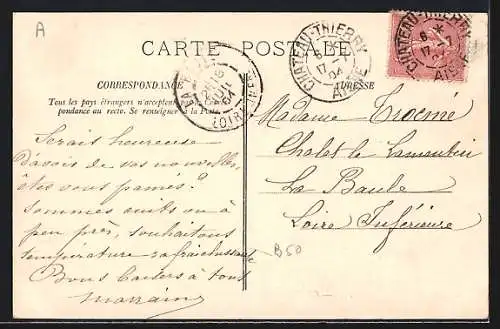 A
CARTE POSTALE
CORRESPONDANCE
Tous les pays étrangers n'acceptent pas la Corres-
pondance au recto. Se renseigner à la Poste.
ADRESSE
CHATEAU-THIERRY
8 E
17 -7
04
AISNE
CHATEAU-THIERRY
8 E
17 -7
AISNE
LOIRE INFRE
Serais heureuse
d'avoir de vos nouvelles,
êtes vous pamés?
Sommes cuits ou à
peu près, souhaitons
température rafraichissante
Bons baisers à tous
marraine
Madame Trocmé
Chalet le Lamentin
La Baule
Loire Inférieure
B50